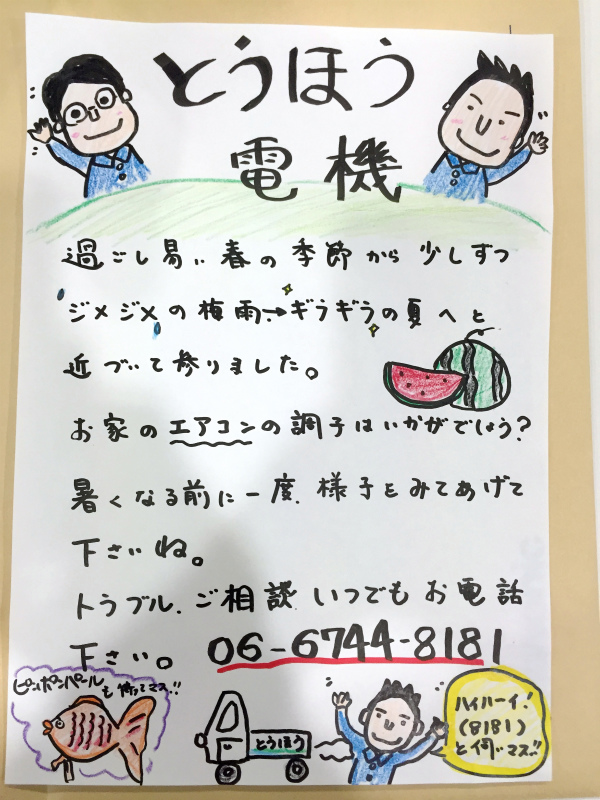 とうほう
電機
過ごし易い春の季節から少しずつ
ジメジメの梅雨→ギラギラの夏へと
近づいて参りました。
お家のエアコンの調子はいかがでしょう?
暑くなる前に一度、様子をみてあげて
下さいね。
トラブル、ご相談、いつでもお電話
下さい。06-6744-8181
ピンポンパール
も待ってマス!!
とうほう
ハイハーイ!
(8181)
と伺いマス!!